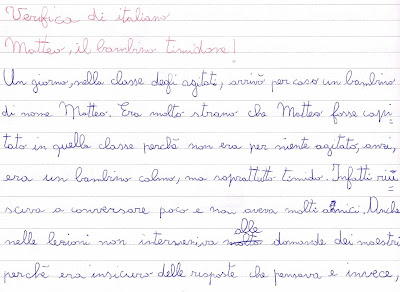 Verifica di italiano
Matteo, il bambino timidone!
Un giorno, nella classe degli agitati, arrivò per caso un bambino
di nome Matteo. Era molto strano che Matteo fosse capi=
tato in quella classe perchè non era per niente agitato, anzi,
era un bambino calmo, ma soprattutto timido. Infatti riu=
sciva a conversare poco e non aveva molti amici. Anche
nelle lezioni non interveniva alle domande dei maestri
perchè era insicuro delle risposte che pensava e invece,